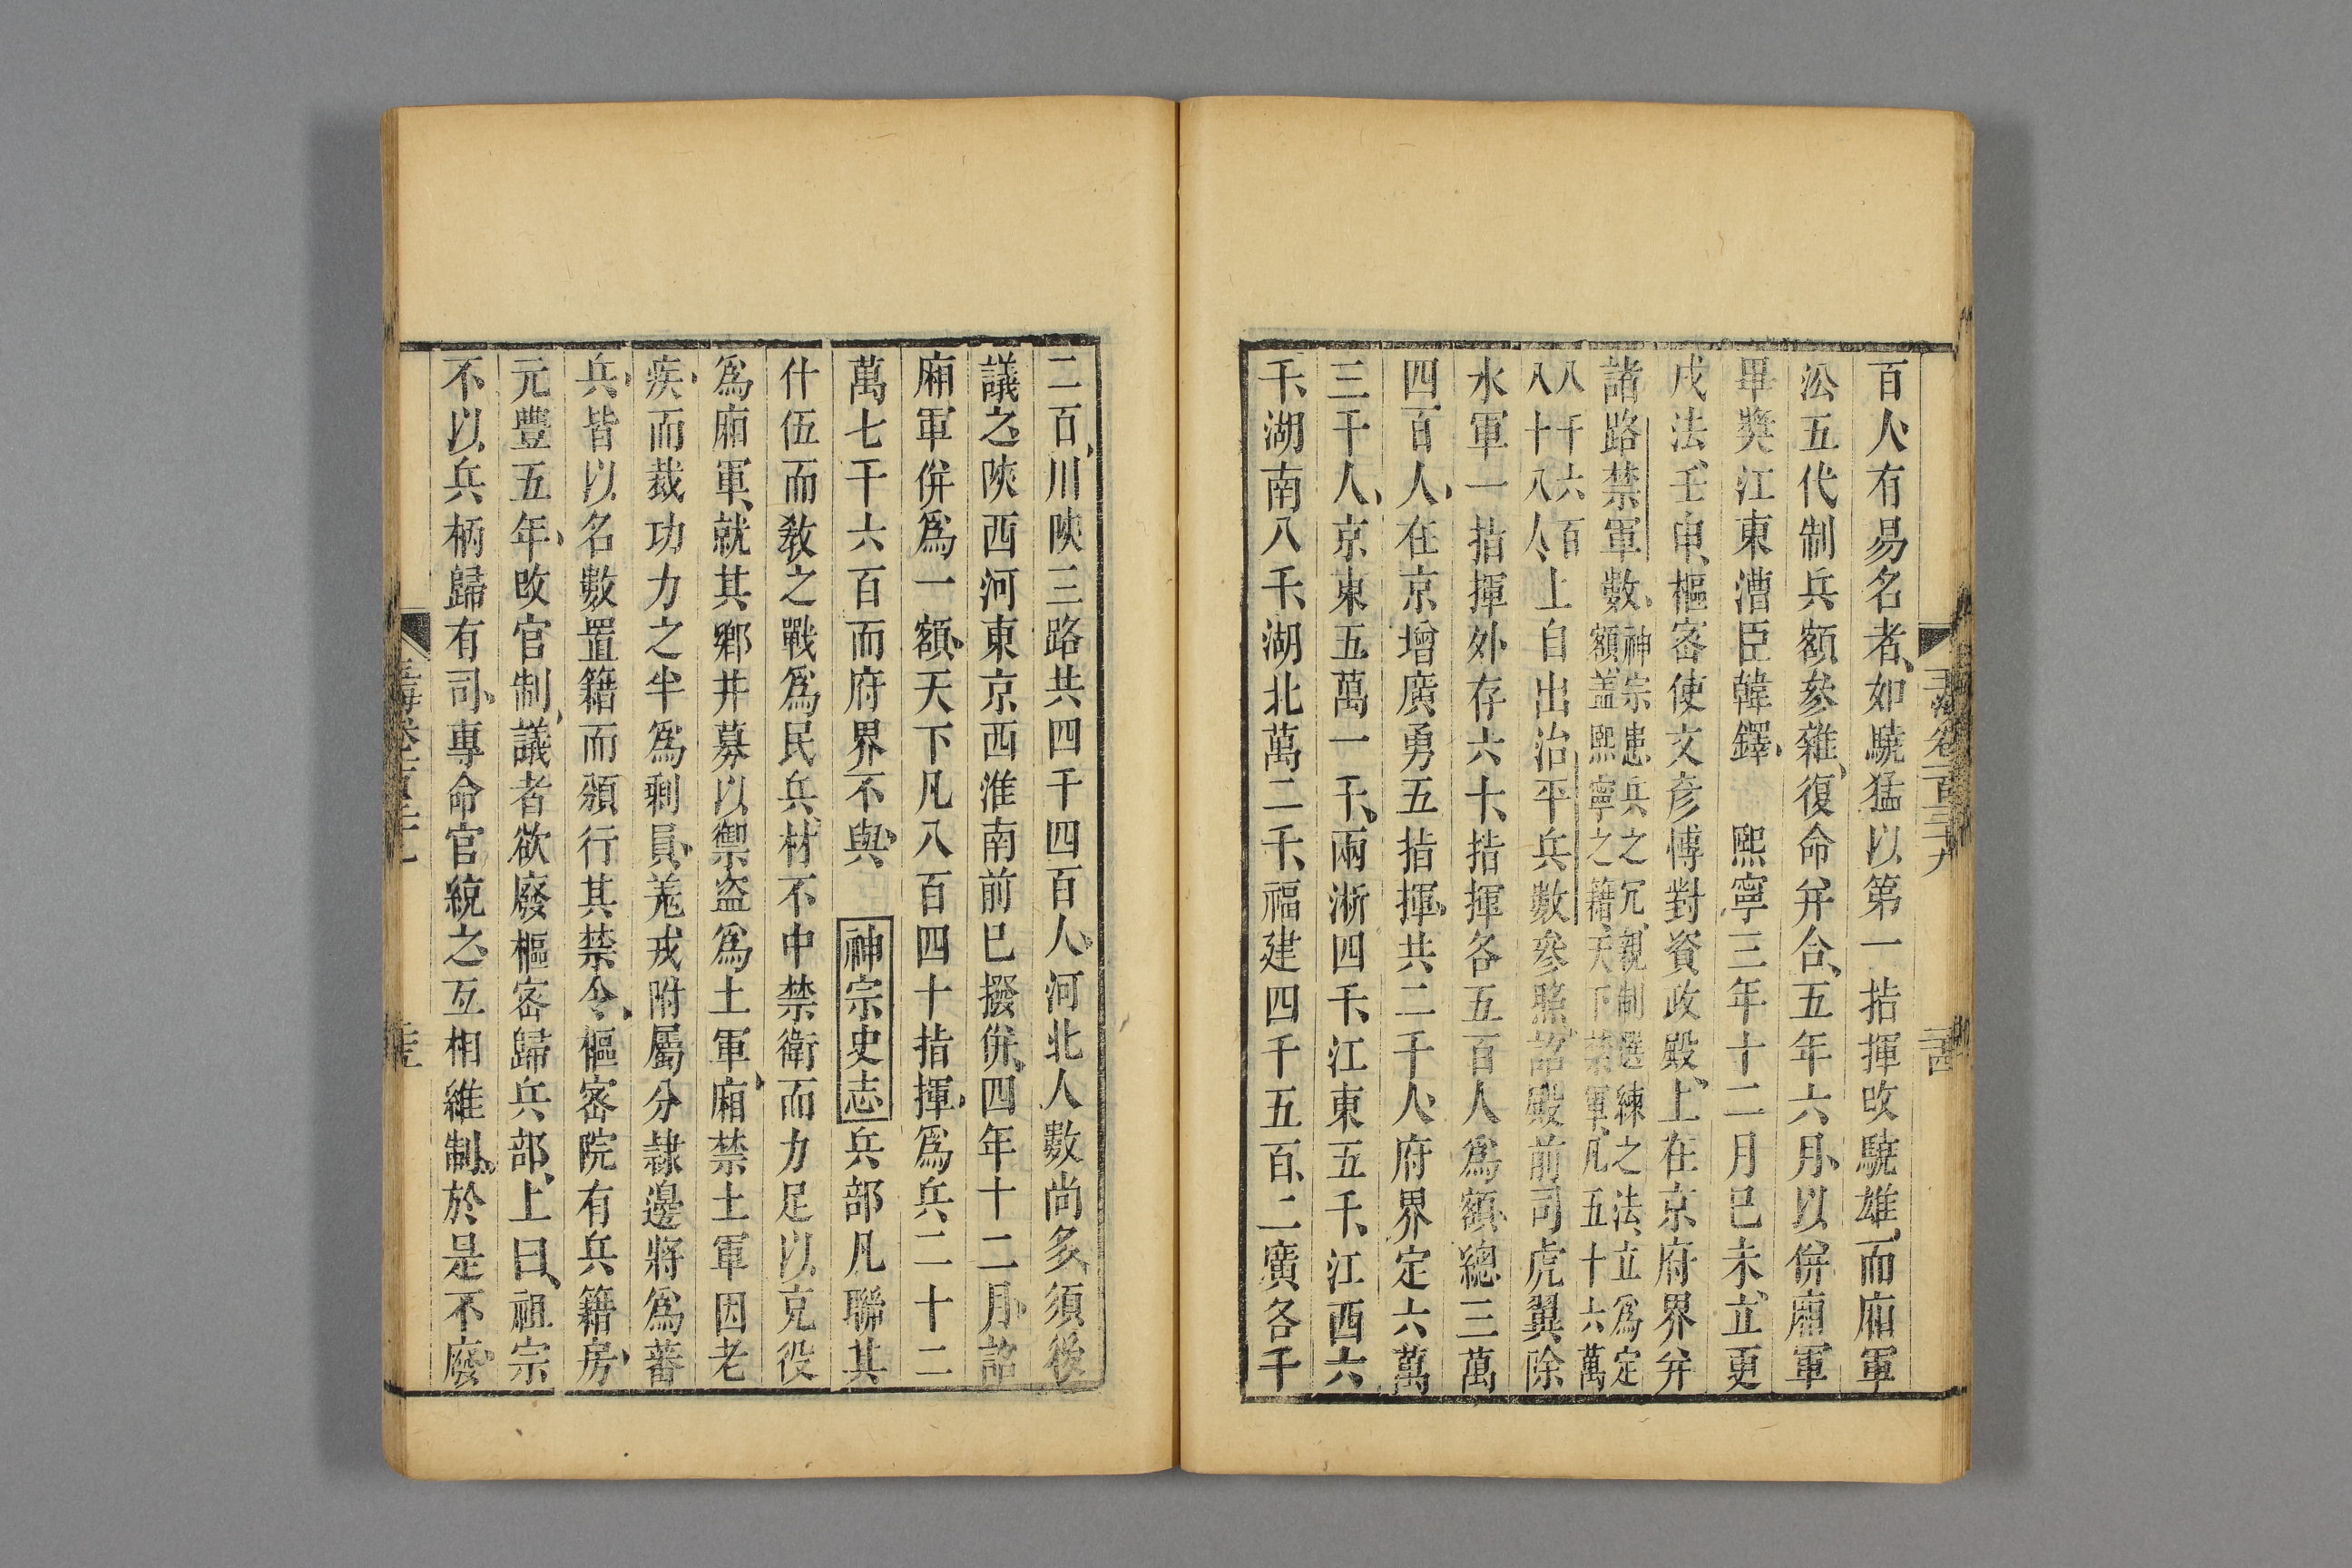 百人有易名者如驍猛以第一指揮改驍雄而廂軍
㳂五代制兵額參雜復命并合五年六月以併廂軍
畢奬江東漕臣韓鐸 熙寧三年十二月已未立更
戍法壬申樞密使文彦博對資政殿上在京府界并
諸路禁軍數神宗患兵之冗親制選練之法立爲定
額蓋熙寧之籍天下禁軍凡五十六萬
八千六百
八十八人上自出治平兵數參照詔殿前司虎翼除
水軍一指揮外存六十指揮各五百人爲額總三萬
四百人在京增廣勇五指揮共二千人府界定六萬
三千人京東五萬一千兩浙四千江東五千江西六
千湖南八千湖北萬二千福建四千五百二廣各千
二百川陝三路共四千四百人河北人數尚多須後
議之陝西河東京西淮南前已撥併四年十二月詔
廂軍併爲一額天下凡八百四十指揮爲兵二十二
萬七千六百而府界不與 神宗史志兵部凡聯其
什伍而敎之戰爲民兵材不中禁衛而力足以充役
爲廂軍就其鄉井募以禦盗爲土軍廂禁土軍因老
疾而裁功力之半爲剩員羗戎附屬分隷邊將爲蕃
兵皆以名數置籍而頒行其禁令樞密院有兵籍房
元豐五年改官制議者欲廢樞密歸兵部上曰祖宗
不以兵柄歸有司專命官統之互相維制於是不廢